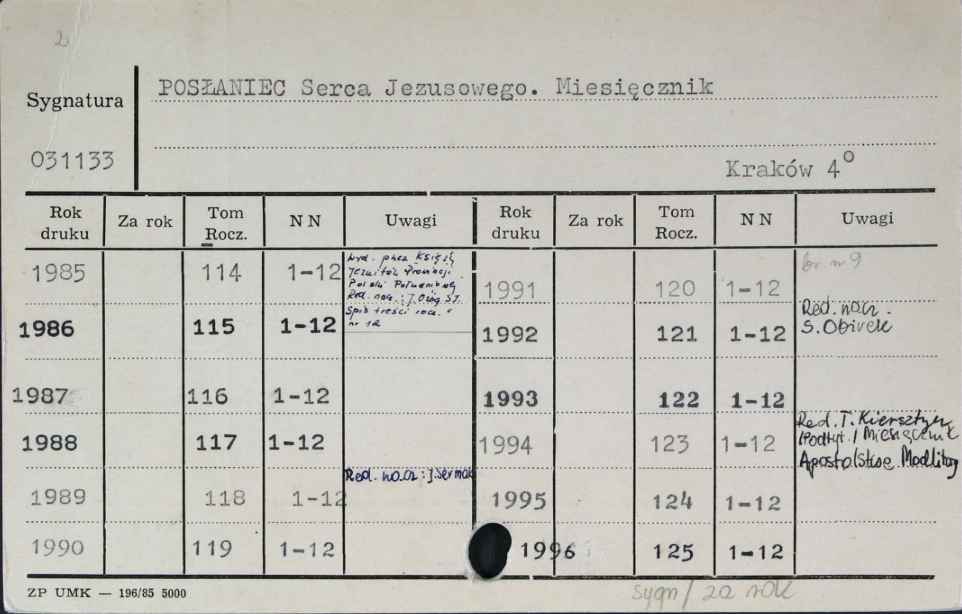 2
Sygnatura
POSŁANIEC Serca Jezusowego. Miesięcznik
031133
Kraków 4°
Rok druku Za rok Tom Rocz. N N Uwagi Rok druku Za rok Tom Rocz. N N Uwagi
1985 114 1-12
Wyd. przez Księży
Polski Południowej
Red. nacz.: J. Ożóg SJ.
Spis treści rocz. w
nr 12
1991 120 1-12 br. nr 9
1986 115 1-12
1992 121 1-12
Red. nacz.
S. Obirek
1987 116 1-12
1993 122 1-12
1988 117 1-12
1994 123 1-12
Red. T. Kiersztyn
/Podtyt./ Miesięcznik
Apostolstwa Modlitwy
1989 118 1-12
Red. nacz: J. Sermak
1995 124 1-12
1990 119 1-12
1996 125 1-12
ZP UMK — 196/85 5000
sygn / za rok